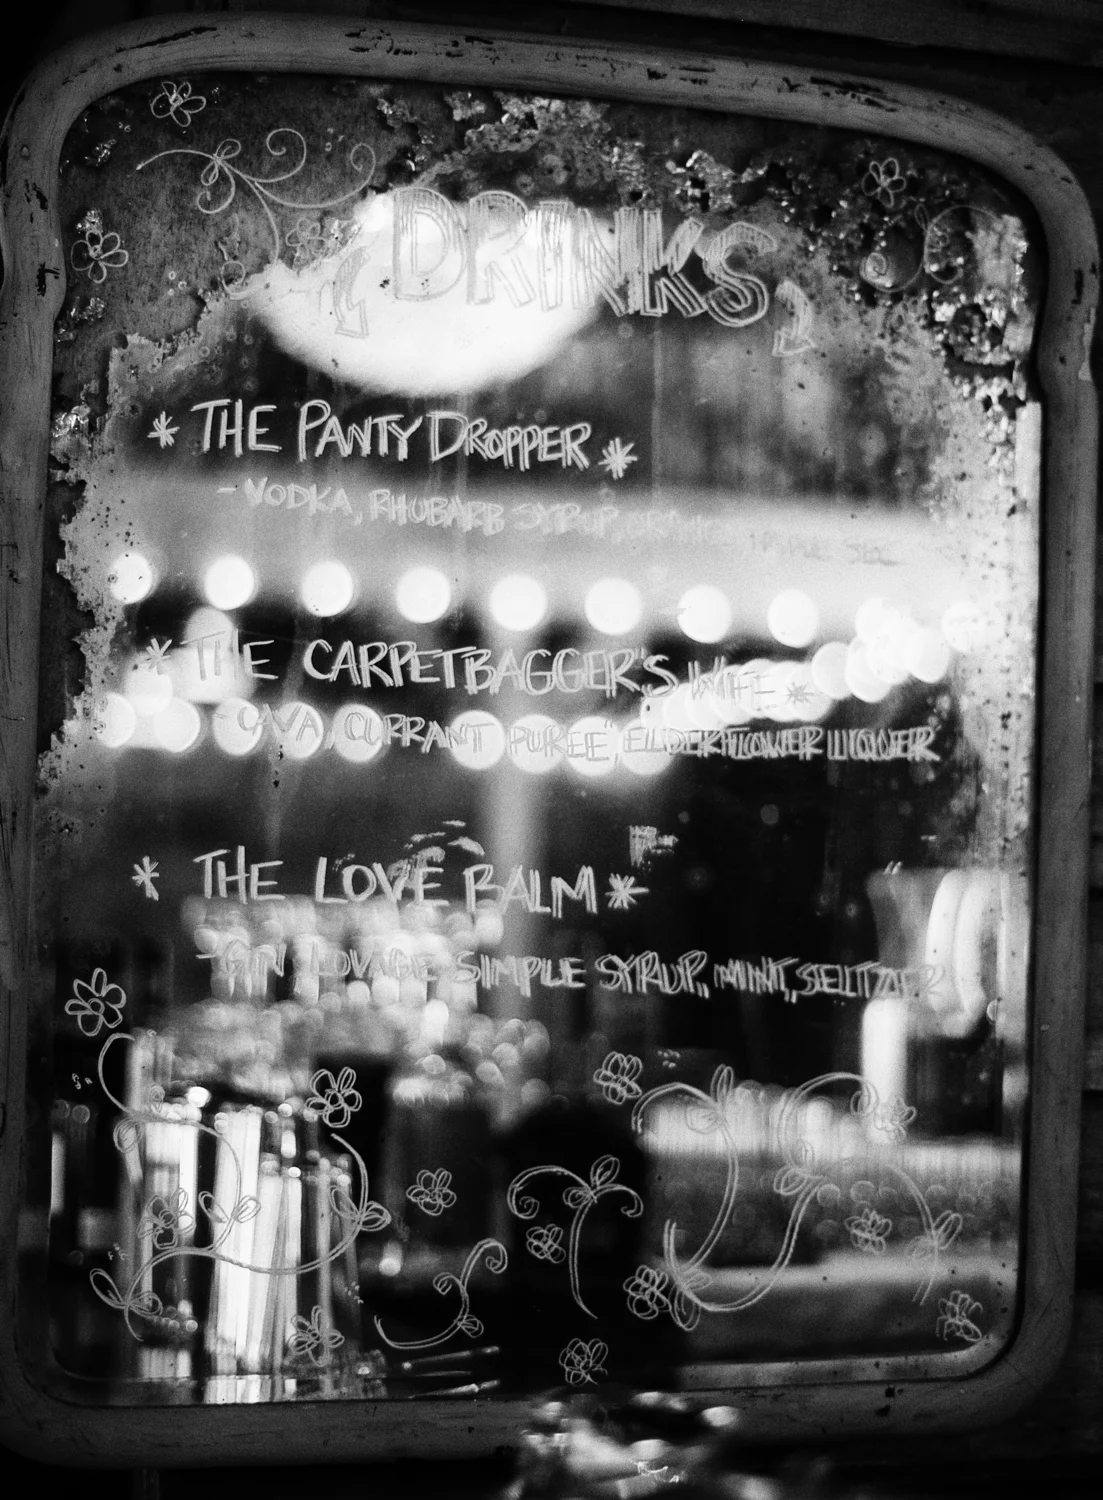 DRINKS
* THE PANTY DROPPER *
- VODKA, RHUBARB SYRUP, TRIPLE SEC
* THE CARPETBAGGER'S WIFE *
- CAVA, CURRANT PUREE, ELDERFLOWER LIQUER
* THE LOVE BALM *
- GIN, LOVAGE SIMPLE SYRUP, MINT, SELTZER